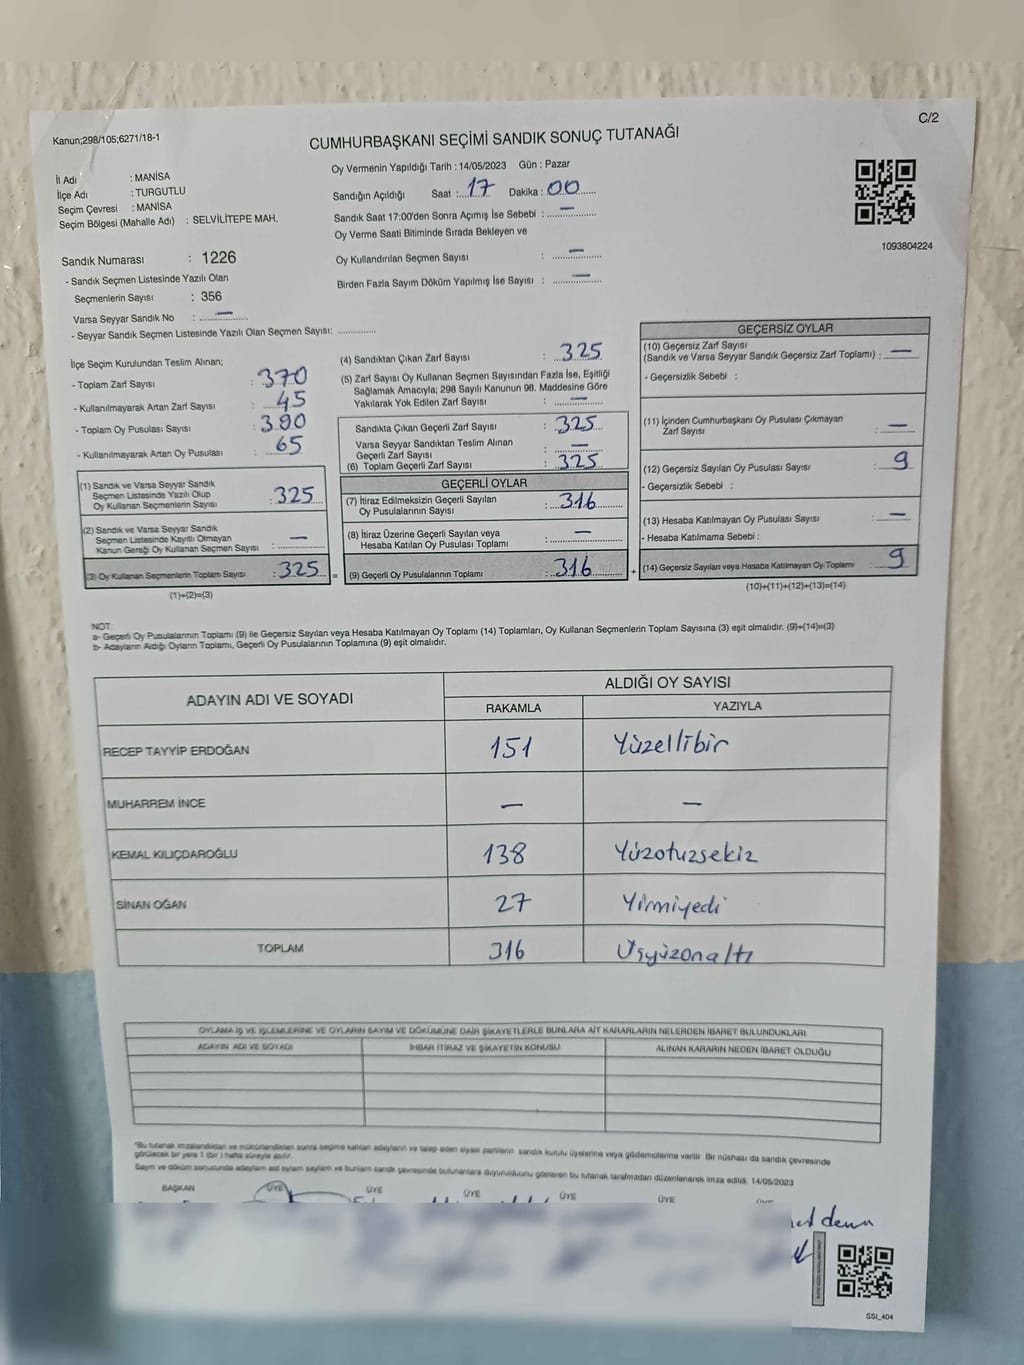 C/2
Kanun;298/105;6271/18-1
CUMHURBAŞKANI SEÇİMİ SANDIK SONUÇ TUTANAĞI
İl Adı : MANİSA
İlçe Adı : TURGUTLU
Seçim Çevresi : MANİSA
Seçim Bölgesi (Mahalle Adı) : SELVİLİTEPE MAH.
Oy Vermenin Yapıldığı Tarih : 14/05/2023 Gün : Pazar
Sandığın Açıldığı Saat :17 Dakika : 00
Sandık Saat 17:00'den Sonra Açımış İse Sebebi : —
Oy Verme Saati Bitiminde Sırada Bekleyen ve
Oy Kullandırılan Seçmen Sayısı : —
Birden Fazla Sayım Döküm Yapılmış İse Sayısı : —
1093804224
Sandık Numarası : 1226
- Sandık Seçmen Listesinde Yazılı Olan
Seçmenlerin Sayısı : 356
Varsa Seyyar Sandık No : —
- Seyyar Sandık Seçmen Listesinde Yazılı Olan Seçmen Sayısı: ..............
İlçe Seçim Kurulundan Teslim Alınan;
- Toplam Zarf Sayısı : 370
- Kullanılmayarak Artan Zarf Sayısı : 45
- Toplam Oy Pusulası Sayısı : 390
- Kullanılmayarak Artan Oy Pusulası : 65
(1) Sandık ve Varsa Seyyar Sandık
Seçmen Listesinde Yazılı Olup
Oy Kullanan Seçmenlerin Sayısı : 325
(2) Sandık ve Varsa Seyyar Sandık
Seçmen Listesinde Kayıtlı Olmayan
Kanun Gereği Oy Kullanan Seçmen Sayısı : —
(3) Oy Kullanan Seçmenlerin Toplam Sayısı : 325
(1)+(2)=(3)
(4) Sandıktan Çıkan Zarf Sayısı : 325
(5) Zarf Sayısı Oy Kullanan Seçmen Sayısından Fazla İse, Eşitliği
Sağlamak Amacıyla; 298 Sayılı Kanunun 98. Maddesine Göre
Yakılarak Yok Edilen Zarf Sayısı : —
Sandıkta Çıkan Geçerli Zarf Sayısı : 325
Varsa Seyyar Sandıktan Teslim Alınan
Geçerli Zarf Sayısı : —
(6) Toplam Geçerli Zarf Sayısı : 325
GEÇERLİ OYLAR
(7) İtiraz Edilmeksizin Geçerli Sayılan
Oy Pusulalarının Sayısı : 316
(8) İtiraz Üzerine Geçerli Sayılan veya
Hesaba Katılan Oy Pusulası Toplamı : —
= (9) Geçerli Oy Pusulalarının Toplamı : 316
GEÇERSİZ OYLAR
(10) Geçersiz Zarf Sayısı
(Sandık ve Varsa Seyyar Sandık Geçersiz Zarf Toplamı) : —
- Geçersizlik Sebebi :
(11) İçinden Cumhurbaşkanı Oy Pusulası Çıkmayan
Zarf Sayısı : —
(12) Geçersiz Sayılan Oy Pusulası Sayısı : 9
- Geçersizlik Sebebi :
(13) Hesaba Katılmayan Oy Pusulası Sayısı : —
- Hesaba Katılmama Sebebi :
+ (14) Geçersiz Sayılan veya Hesaba Katılmayan Oy Toplamı : 9
(10)+(11)+(12)+(13)=(14)
NOT:
a- Geçerli Oy Pusulalarının Toplamı (9) ile Geçersiz Sayılan veya Hesaba Katılmayan Oy Toplamı (14) Toplamları, Oy Kullanan Seçmenlerin Toplam Sayısına (3) eşit olmalıdır. (9)+(14)=(3)
b- Adayların Aldığı Oyların Toplamı, Geçerli Oy Pusulalarının Toplamına (9) eşit olmalıdır.
ADAYIN ADI VE SOYADI ALDIĞI OY SAYISI
RAKAMLA YAZIYLA
RECEP TAYYİP ERDOĞAN 151 Yüzellibir
MUHARREM İNCE — —
KEMAL KILIÇDAROĞLU 138 Yüzotuzsekiz
SİNAN OĞAN 27 Yirmiyedi
TOPLAM 316 Üçyüzonaltı
OYLAMA İŞ VE İŞLEMLERİNE VE OYLARIN SAYIM VE DÖKÜMÜNE DAİR ŞİKAYETLERLE BUNLARA AİT KARARLARIN NELERDEN İBARET BULUNDUKLARI
ADAYIN ADI VE SOYADI İHBAR İTİRAZ VE ŞİKAYETİN KONUSU ALINAN KARARIN NEDEN İBARET OLDUĞU
*Bu tutanak imzalandıktan ve mühürlendikten sonra seçime katılan adayların ve talep eden siyasi partilerin sandık kurulu üyelerine veya gözlemcilerine verilir. Bir nüshası da sandık çevresinde
görülecek bir yere 1 (bir ) hafta süreyle asılır.
Sayım ve döküm sonucunda adayların aldı oyların sayıları ve bunların sandık çevresinde bulunanlara duyurulduğunu gösteren bu tutanak tarafımızdan düzenlenerek imza edildi. 14/05/2023
BAŞKAN ÜYE ÜYE ÜYE ÜYE ÜYE
SSI_404